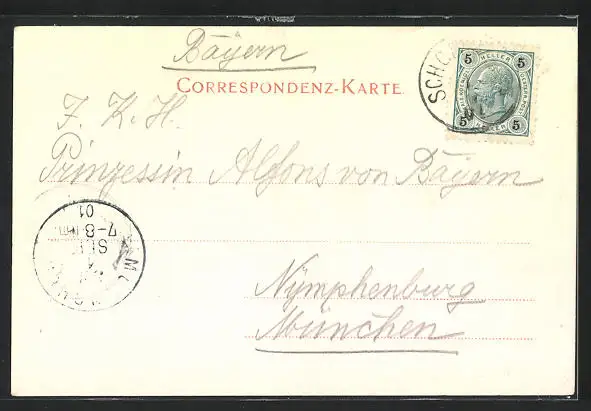 Bayern
CORRESPONDENZ-KARTE.
5 HELLER 5
5 HELLER 5
SCHO
I. K. H.
Prinzessin Alfons von Bayern
01
7-8
SEP
Nymphenburg
München